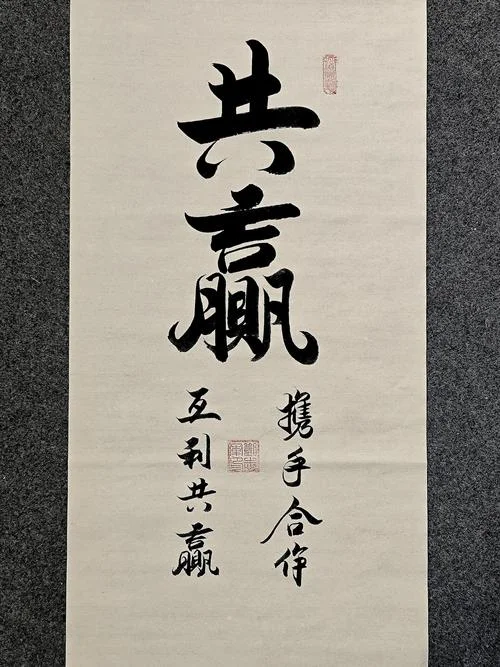 共赢
携手合作
互利共赢